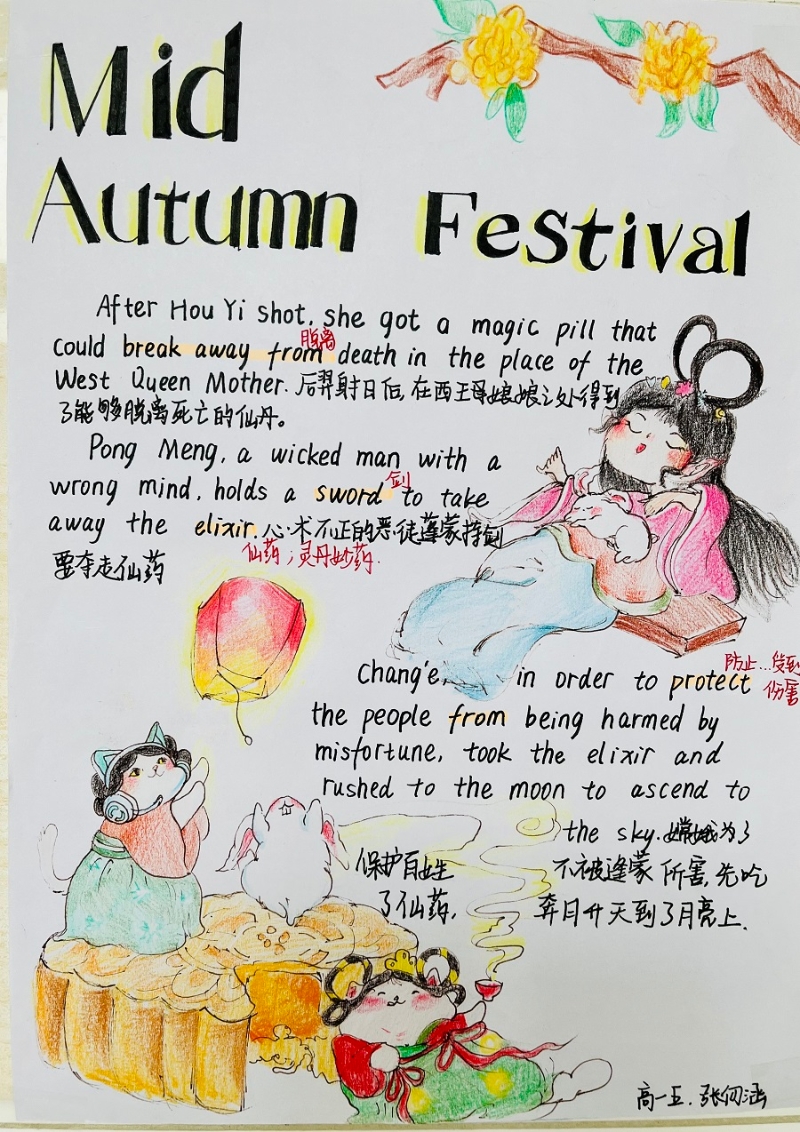 Mid
Autumn Festival
After Hou Yi shot, she got a magic pill that
脱离
could break away from death in the place of the
West Queen Mother. 后羿射日后,在西王母娘娘之处得到
了能够脱离死亡的仙丹。
Pong Meng, a wicked man with a
剑
wrong mind, holds a sword to take
away the elixir. 心术不正的恶徒蓬蒙持剑
仙药;灵丹妙药.
要夺走仙药
防止...受到
伤害
Chang'e, in order to protect
the people from being harmed by
misfortune, took the elixir and
rushed to the moon to ascend to
the sky. 嫦娥为了
保护百姓 不被逢蒙所害,先吃
了仙药, 奔月升天到了月亮上.
高一五.张何涵